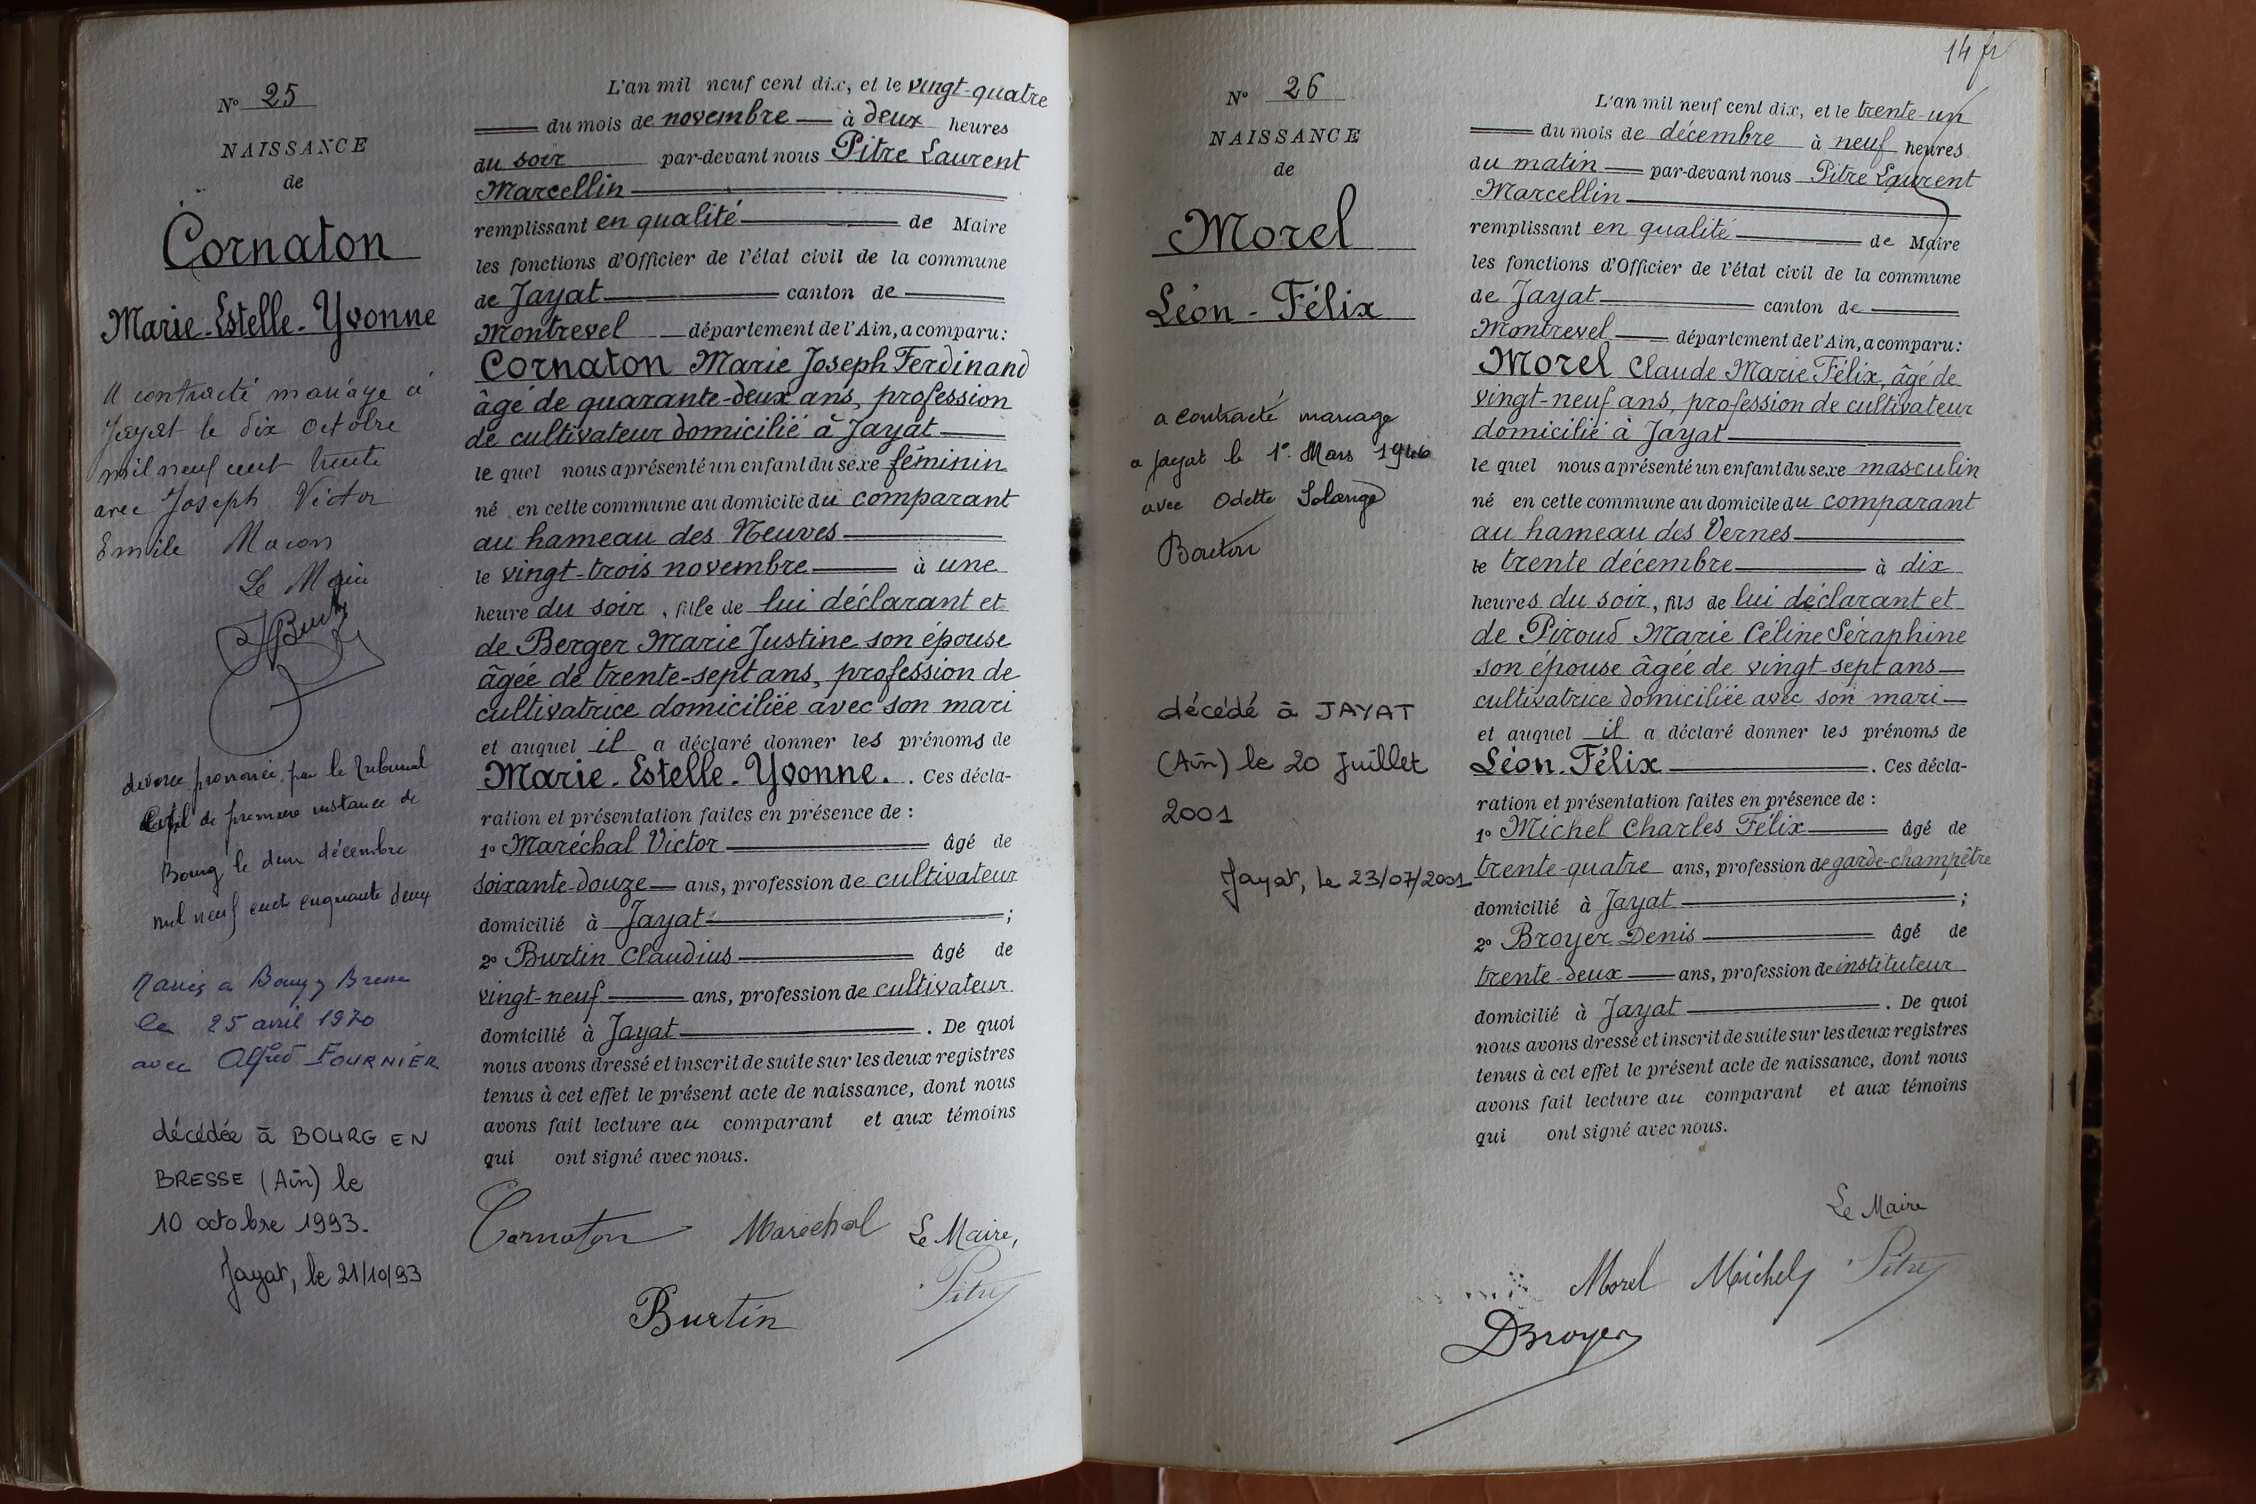 N° 25
NAISSANCE
de
Cornaton
Marie-Estelle-Yvonne
A contracté mariage à
Jayat le dix octobre
mil neuf cent trente
avec Joseph Victor
Emile Macon
Le Maire
divorce prononcé par le tribunal
Civil de première instance de
Bourg le deux décembre
mil neuf cent cinquante deux
Mariée à Bourg Bresse
le 25 avril 1970
avec Alfred FOURNIER
décédée à BOURG EN
BRESSE (Ain) le
10 octobre 1993.
Jayat, le 21/10/93
L'an mil neuf cent dix, et le vingt-quatre
du mois de novembre à deux heures
du soir par-devant nous Pitre Laurent
Marcellin
remplissant en qualité de Maire
les fonctions d'Officier de l'état civil de la commune
de Jayat canton de
Montrevel département de l'Ain, a comparu:
Cornaton Marie Joseph Ferdinand
âgé de quarante-deux ans, profession
de cultivateur domicilié à Jayat
le quel nous a présenté un enfant du sexe féminin
né en cette commune au domicile du comparant
au hameau des Neuves
le vingt-trois novembre à une
heure du soir, fille de lui déclarant et
de Berger Marie Justine son épouse
âgée de trente-sept ans, profession de
cultivatrice domiciliée avec son mari
et auquel il a déclaré donner les prénoms de
Marie-Estelle-Yvonne. . Ces décla-
ration et présentation faites en présence de :
1° Maréchal Victor âgé de
soixante-douze ans, profession de cultivateur
domicilié à Jayat ;
2° Burtin Claudius âgé de
vingt-neuf ans, profession de cultivateur
domicilié à Jayat . De quoi
nous avons dressé et inscrit de suite sur les deux registres
tenus à cet effet le présent acte de naissance, dont nous
avons fait lecture au comparant et aux témoins
qui ont signé avec nous.
Cornaton Maréchal Le Maire,
Burtin Pitre
14 fr
N° 26
NAISSANCE
de
Morel
Léon-Félix
a contracté mariage
a Jayat le 1er Mars 1946
avec Odette Solange
Bouton
décédé à JAYAT
(Ain) le 20 Juillet
2001
Jayat, le 23/07/2001
L'an mil neuf cent dix, et le trente-un
du mois de décembre à neuf heures
du matin par-devant nous Pitre Laurent
Marcellin
remplissant en qualité de Maire
les fonctions d'Officier de l'état civil de la commune
de Jayat canton de
Montrevel département de l'Ain, a comparu:
Morel Claude Marie Félix, âgé de
vingt-neuf ans, profession de cultivateur
domicilié à Jayat
le quel nous a présenté un enfant du sexe masculin
né en cette commune au domicile du comparant
au hameau des Vernes
le trente décembre à dix
heures du soir, fils de lui déclarant et
de Piroud Marie Céline Séraphine
son épouse âgée de vingt-sept ans
cultivatrice domiciliée avec son mari
et auquel il a déclaré donner les prénoms de
Léon-Félix . Ces décla-
ration et présentation faites en présence de :
1° Michel Charles Félix âgé de
trente-quatre ans, profession de garde-champêtre
domicilié à Jayat ;
2° Broyer Denis âgé de
trente-deux ans, profession de instituteur
domicilié à Jayat . De quoi
nous avons dressé et inscrit de suite sur les deux registres
tenus à cet effet le présent acte de naissance, dont nous
avons fait lecture au comparant et aux témoins
qui ont signé avec nous.
Le Maire
Morel Michel Pitre
DBroyer